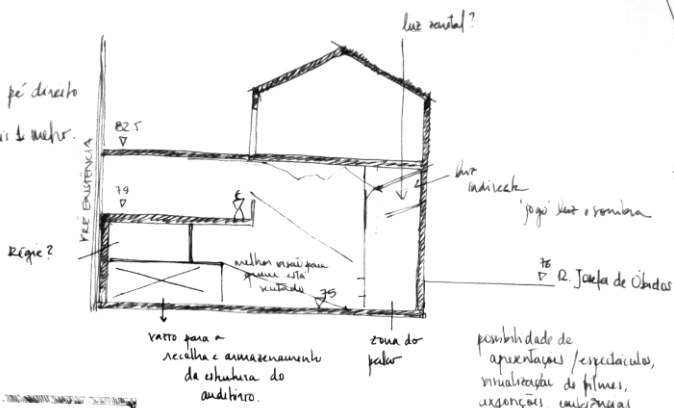 luz zenital?
pé direito
is 1 metro.
82.5
PRÉ EXISTÊNCIA
79
luz
indirecta
'jogo' luz e sombra
Régie?
melhor visão para
quem está
sentado
75
76
R. Josefa de Óbidos
vazio para a
recolha e armazenamento
da estrutura do
auditório.
zona do
palco
possibilidade de
apresentações / espectáculos,
visualização de filmes,
exposições, conferências